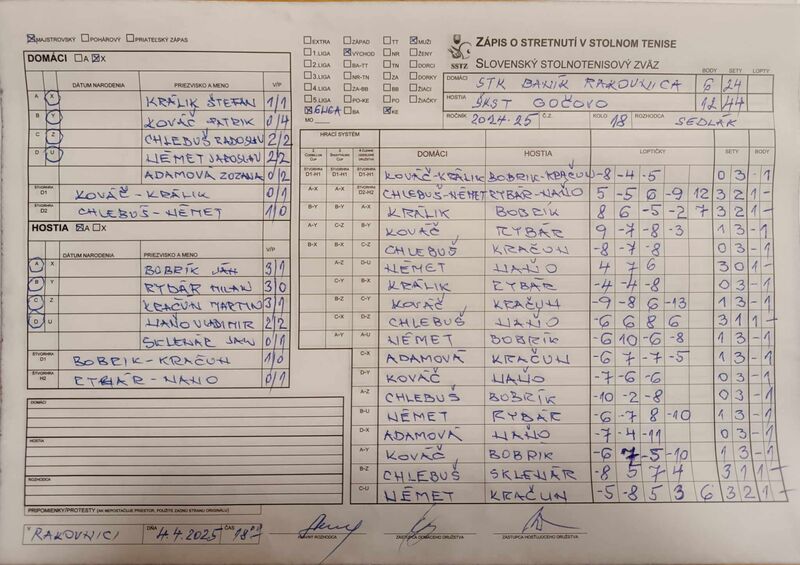 MAJSTROVSKÝ POHÁROVÝ PRIATEĽSKÝ ZÁPAS
DOMÁCI A X
DÁTUM NARODENIA PRIEZVISKO A MENO V/P
A X KRÁLIK ŠTEFAN 1/1
B Y KOVÁČ PATRIK 0/4
C Z CHLEBUŠ RADOSLAV 2/2
D U NÉMET JAROSLAV 2/2
ADAMOVÁ ZUZANA 0/2
ŠTVORHRA D1 KOVÁČ - KRÁLIK 0/1
ŠTVORHRA D2 CHLEBUŠ - NÉMET 1/0
HOSTIA A X
DÁTUM NARODENIA PRIEZVISKO A MENO V/P
A X BOBRÍK JÁN 3/1
B Y RYBÁR MILAN 3/0
C Z KRAČUN MARTIN 3/1
D U HAŇO VLADIMIR 2/2
SKLENÁR JAN 0/1
ŠTVORHRA D1 BOBRIK - KRAČUN 1/0
ŠTVORHRA H2 RYBÁR - HAŇO 0/1
DOMÁCI
HOSTIA
ROZHODCA
PRIPOMIENKY/PROTESTY (AK NEPOSTAČUJE PRIESTOR, POUŽITE ZADNÚ STRANU ORIGINÁLU)
V RAKOVNICI DŇA 4.4.2025 ČAS
EXTRA ZÁPAD TT MUŽI
1.LIGA VÝCHOD NR ŽENY
2.LIGA BA-TT TN DORCI
3.LIGA NR-TN ZA DORKY
4.LIGA ZA-BB BB ŽIACI
5.LIGA PO-KE PO ŽIAČKY
6 LIGA BA KE
MO
SSTZ
ZÁPIS O STRETNUTÍ V STOLNOM TENISE
SLOVENSKÝ STOLNOTENISOVÝ ZVÄZ
BODY SETY LOPTY
DOMÁCI STK BANÍK RAKOVNICA 6 24
HOSTIA ŠKST GOČOVO 12 44
ROČNÍK 2024-25 Č.Z. KOLO 18 ROZHODCA SEDLÁK
HRACÍ SYSTÉM
DOMÁCI HOSTIA LOPTIČKY SETY BODY
D1-H1 D1-H1 D1-H1 KOVÁČ-KRÁLIK BOBRIK-KRAČUN -8 -4 -5 0 3 - 1
A-X A-X D2-H2 CHLEBUŠ-NÉMET RYBÁR-HAŇO 5 -5 6 -9 12 3 2 1 -
B-Y B-Y A-X KRÁLIK BOBRÍK 8 6 -5 -2 7 3 2 1 -
A-Y C-Z B-Y KOVÁČ RYBÁR 9 -7 -8 -3 1 3 - 1
B-X B-X C-Z CHLEBUŠ KRAČUN -8 -7 -8 0 3 - 1
A-Z D-U NÉMET HAŇO 4 7 6 3 0 1 -
B-X KRÁLIK RYBÁR -4 -4 -8 0 3 - 1
B-Z C-Y KOVÁČ KRAČUN -9 -8 6 -13 1 3 - 1
C-Y D-Z CHLEBUŠ HAŇO -6 6 8 6 3 1 1 -
A-Y A-U NÉMET BOBRIK -6 10 -6 -8 1 3 - 1
C-X ADAMOVÁ KRAČUN -6 7 -7 -5 1 3 - 1
D-Y KOVÁČ HAŇO -7 -6 -6 0 3 - 1
A-Z CHLEBUŠ BOBRÍK -10 -2 -8 0 3 - 1
B-U NÉMET RYBÁR -6 -7 8 -10 1 3 - 1
D-X ADAMOVÁ HAŇO -7 -4 -11 0 3 - 1
A-Y KOVÁČ BOBRIK -6 7 -5 -10 1 3 - 1
B-Z CHLEBUŠ SKLENÁR -8 5 7 4 3 1 1 -
C-U NÉMET KRAČUN -5 -8 5 3 6 3 2 1 -
HLAVNÝ ROZHODCA ZÁSTUPCA DOMÁCEHO DRUŽSTVA ZÁSTUPCA HOSŤUJÚCEHO DRUŽSTVA